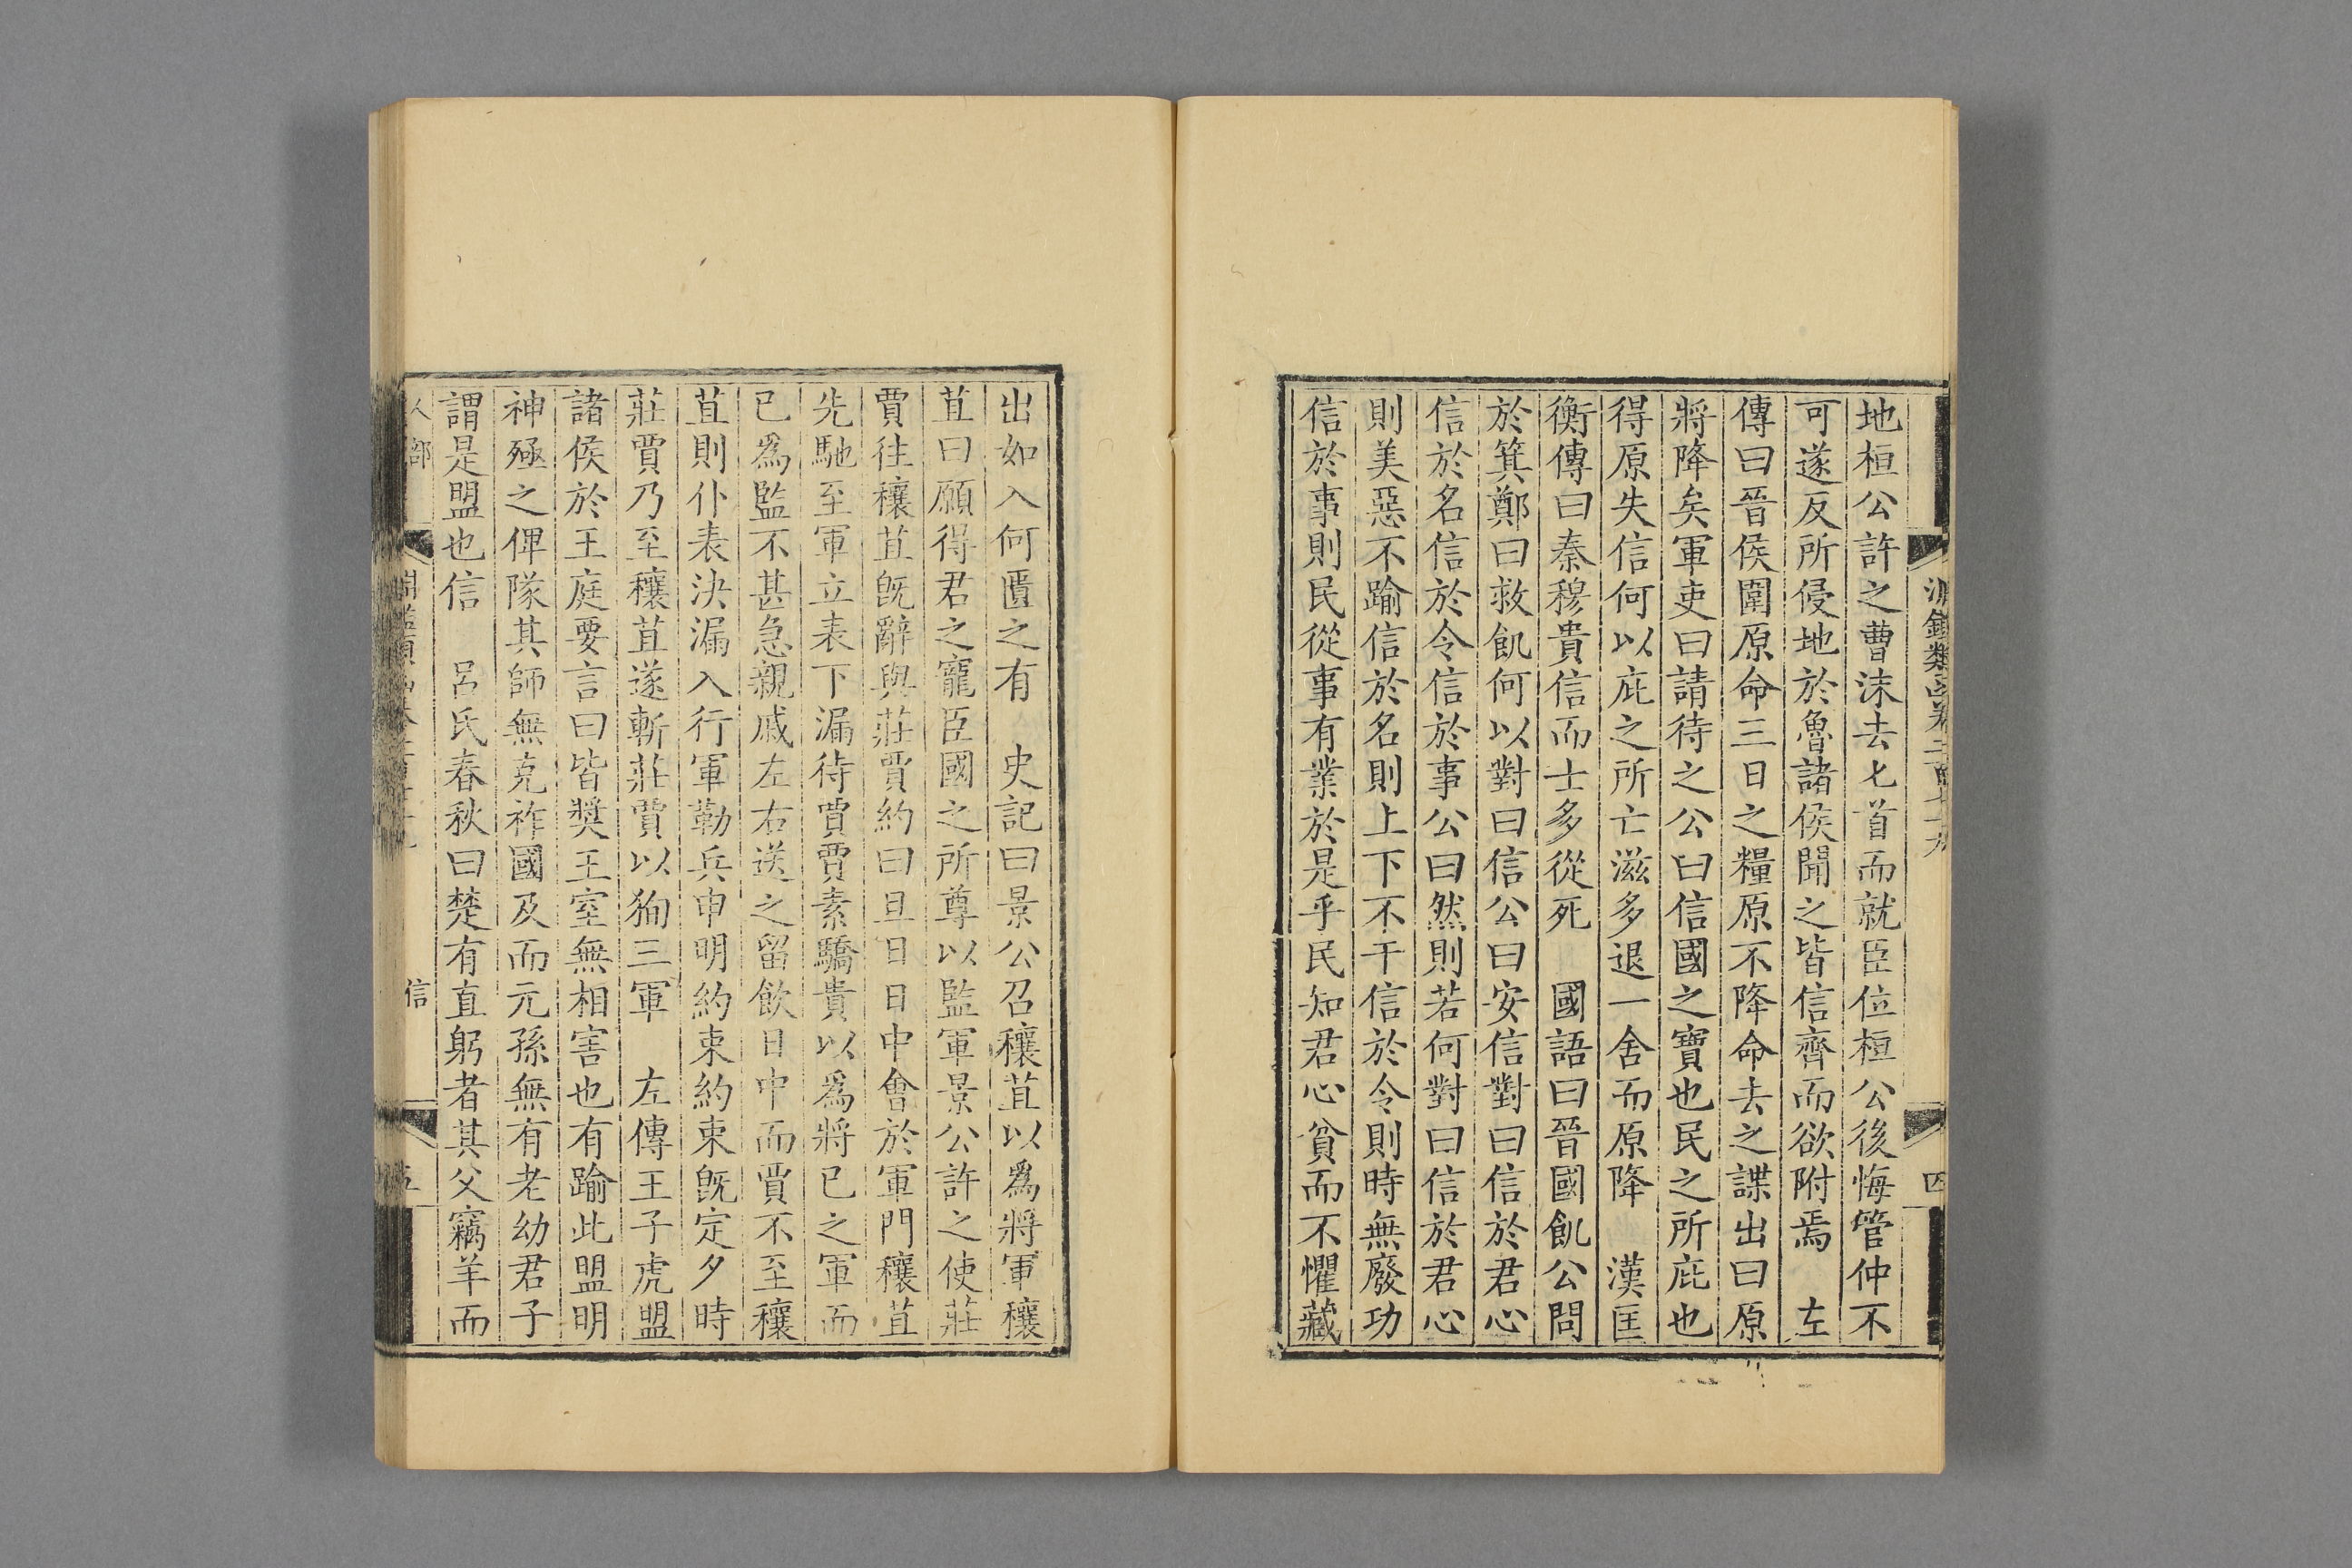 淵鑑類函卷二百七十九
四
地桓公許之曹沬去匕首而就臣位桓公後悔管仲不
可遂反所侵地於魯諸侯聞之皆信齊而欲附焉　左
傳曰晉侯圍原命三日之糧原不降命去之諜出曰原
將降矣軍吏曰請待之公曰信國之寶也民之所庇也
得原失信何以庇之所亡滋多退一舍而原降　漢匡
衡傳曰秦穆貴信而士多從死　國語曰晉國飢公問
於箕鄭曰救飢何以對曰信公曰安信對曰信於君心
信於名信於令信於事公曰然則若何對曰信於君心
則美惡不踰信於名則上下不干信於令則時無廢功
信於事則民從事有業於是乎民知君心貧而不懼藏
出如入何匱之有　史記曰景公召穰苴以爲將軍穰
苴曰願得君之寵臣國之所尊以監軍景公許之使莊
賈往穰苴旣辭與莊賈約曰旦日日中會於軍門穰苴
先馳至軍立表下漏待賈賈素驕貴以爲將已之軍而
已爲監不甚急親戚左右送之留飲日中而賈不至穰
苴則仆表決漏入行軍勒兵申明約束約束旣定夕時
莊賈乃至穰苴遂斬莊賈以狥三軍　左傳王子虎盟
諸侯於王庭要言曰皆獎王室無相害也有踰此盟明
神殛之俾隊其師無克祚國及而元孫無有老幼君子
謂是盟也信　呂氏春秋曰楚有直躬者其父竊羊而
人部
信
五